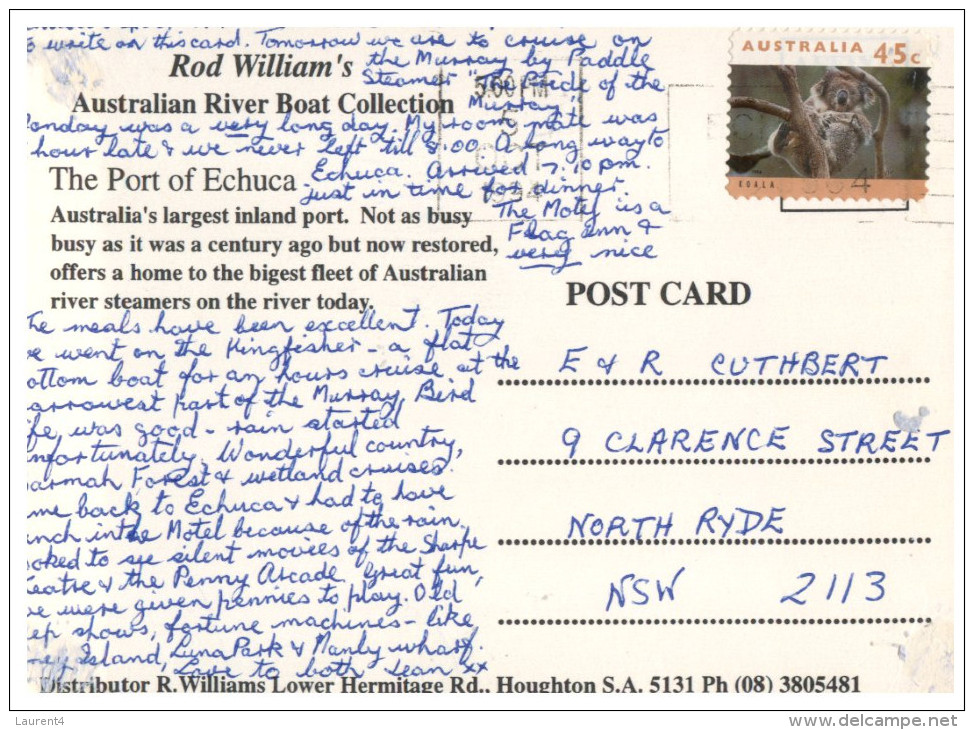 write on this card. Tomorrow we are to cruise on
the Murray by Paddle
Steamer "The Pride of the
Murray".
Rod William's
Australian River Boat Collection
onday was a very long day. My room mate was
hour late & we never left till 8.00 A long way to
Echuca. Arrived 7.10 pm.
just in time for dinner.
The Motel is a
Flag Inn &
very nice
The Port of Echuca
Australia's largest inland port. Not as busy
busy as it was a century ago but now restored,
offers a home to the bigest fleet of Australian
river steamers on the river today.
he meals have been excellent. Today
e went on the Kingfisher - a flat
ottom boat for an hours cruise at the
arrowest part of the Murray. Bird
fe was good - rain started
nfortunately. Wonderful country,
armah Forest & wetland cruises.
me back to Echuca & had to have
nch in the Motel because of the rain.
ooked to see silent movies of the Sharpe
eatre & the Penny Arcade. Great fun,
e were given pennies to play. Old
eep shows, fortune machines - like
ney Island, Luna Park & Manly wharf.
Love to both Jean xx
AUSTRALIA 45c
KOALA
5.00 PM
5
1994
POST CARD
E & R CUTHBERT
9 CLARENCE STREET
NORTH RYDE
NSW 2113
Distributor R.Williams Lower Hermitage Rd., Houghton S.A. 5131 Ph (08) 3805481
Laurent4
www.delcampe.net